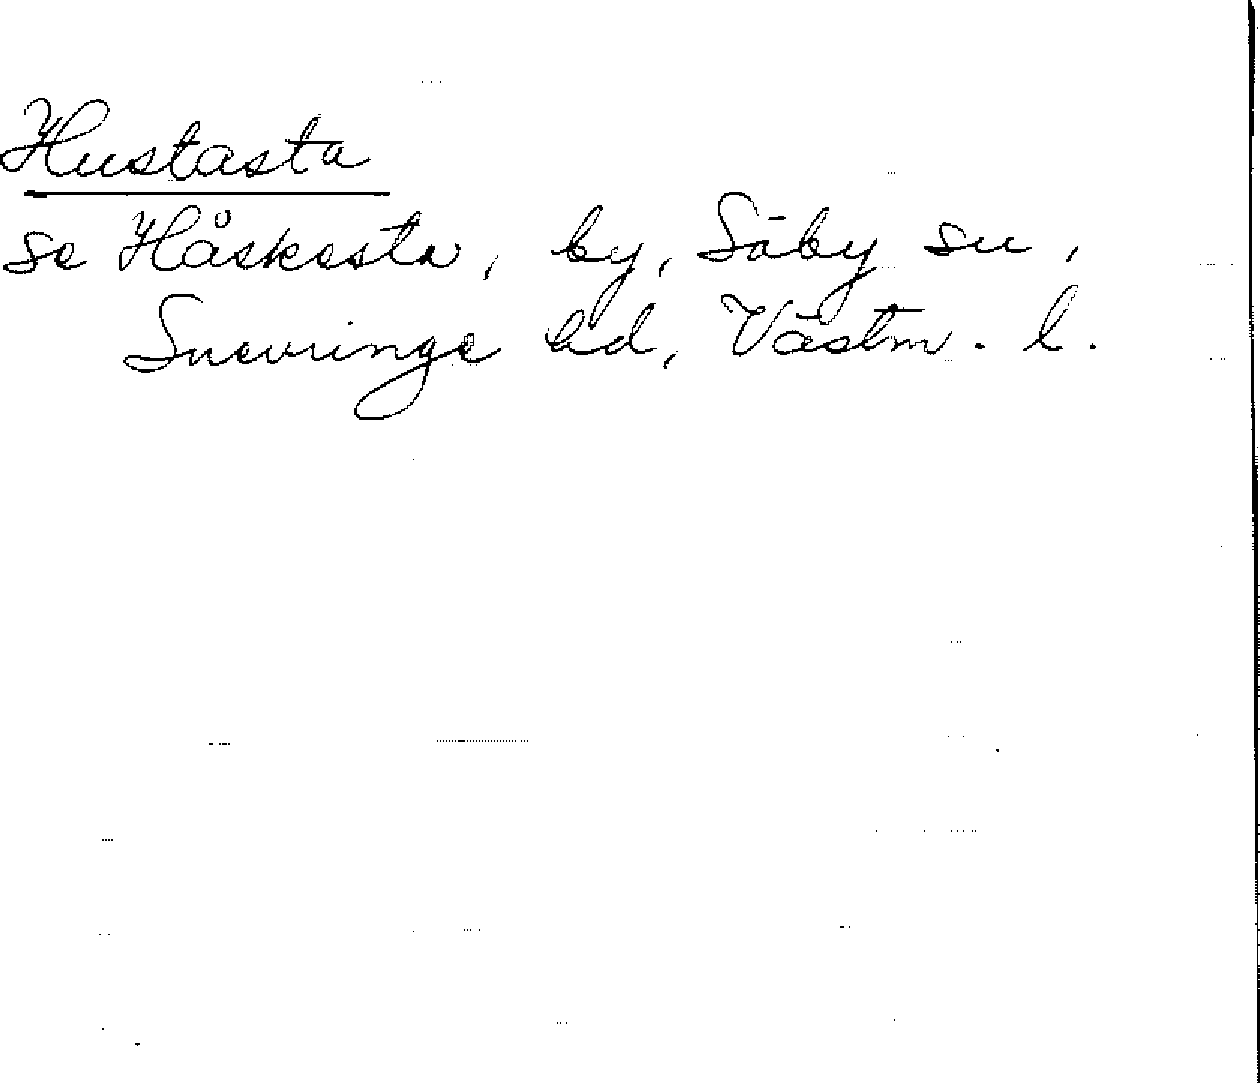 Hustasta
se Håskesta, by, Säby sn,
Snevringe hd, Västm. l.